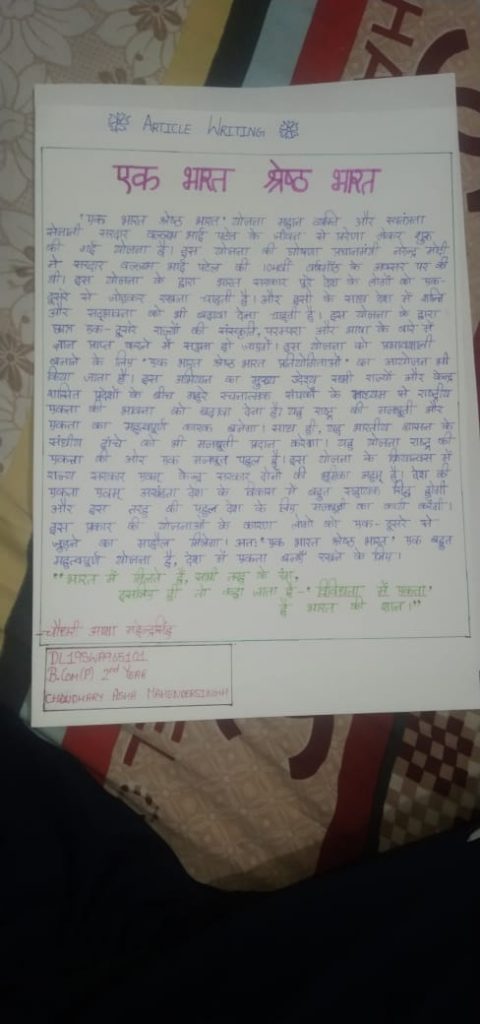 ARTICLE WRITING
एक भारत श्रेष्ठ भारत
'एक भारत श्रेष्ठ भारत' योजना महान व्यक्ति और स्वतंत्रता
सेनानी सरदार वल्लभ भाई पटेल के जीवन से प्रेरणा लेकर शुरू
की गई योजना है। इस योजना की घोषणा प्रधानमंत्री नरेन्द्र मोदी
ने सरदार वल्लभ भाई पटेल की वर्षगाँठ के अवसर पर की
थी। इस योजना के द्वारा भारत सरकार पूरे देश के लोगों को एक-
दूसरे से जोड़कर रखना चाहती है। और इसी के साथ देश में शान्ति
और सद्भावना को भी बढ़ावा देना चाहती है। इस योजना के द्वारा
छात्र एक-दूसरे राज्यों की संस्कृति, परम्परा और भाषा के बारे में
ज्ञान प्राप्त करने में सक्षम हो जाएंगे। इस योजना को प्रभावशाली
बनाने के लिए 'एक भारत श्रेष्ठ भारत प्रतियोगिताओं' का आयोजन भी
किया जाता है। इस अभियान का मुख्य उद्देश्य सभी राज्यों और केन्द्र
शासित प्रदेशों के बीच गहरे रचनात्मक संपर्कों के माध्यम से राष्ट्रीय
एकता की भावना को बढ़ावा देना है। यह राष्ट्र की मजबूती और
एकता का महत्वपूर्ण कारक बनेगा। साथ ही, यह भारतीय शासन के
संघीय ढाँचे को भी मजबूती प्रदान करेगा। यह योजना राष्ट्र की
एकता की ओर एक मजबूत पहल है। इस योजना के क्रियान्वयन में
राज्य सरकार एवम् केन्द्र सरकार दोनों की भूमिका महत्त्व है। देश की
एकता एवम् अखंडता देश के विकास में बहुत सहायक सिद्ध होगी
और इस तरह की पहल देश के लिए मजबूती का कार्य करेगी।
इस प्रकार की योजनाओं के कारण लोगों को एक-दूसरे से
जुड़ने का माहौल मिलेगा। अतः 'एक भारत श्रेष्ठ भारत' एक बहुत
महत्वपूर्ण योजना है, देश में एकता बनाएँ रखने के लिए।
"भारत में मिलते हैं, सभी तरह के रंग,
इसलिए ही तो कहा जाता है - 'विविधता में एकता'
है भारत की शान।"
-चौधरी आशा महेन्द्रसिंह
DL19SWA965101
B.COM(P) 2nd YEAR
CHAUDHARY ASHA MAHENDERSINGH